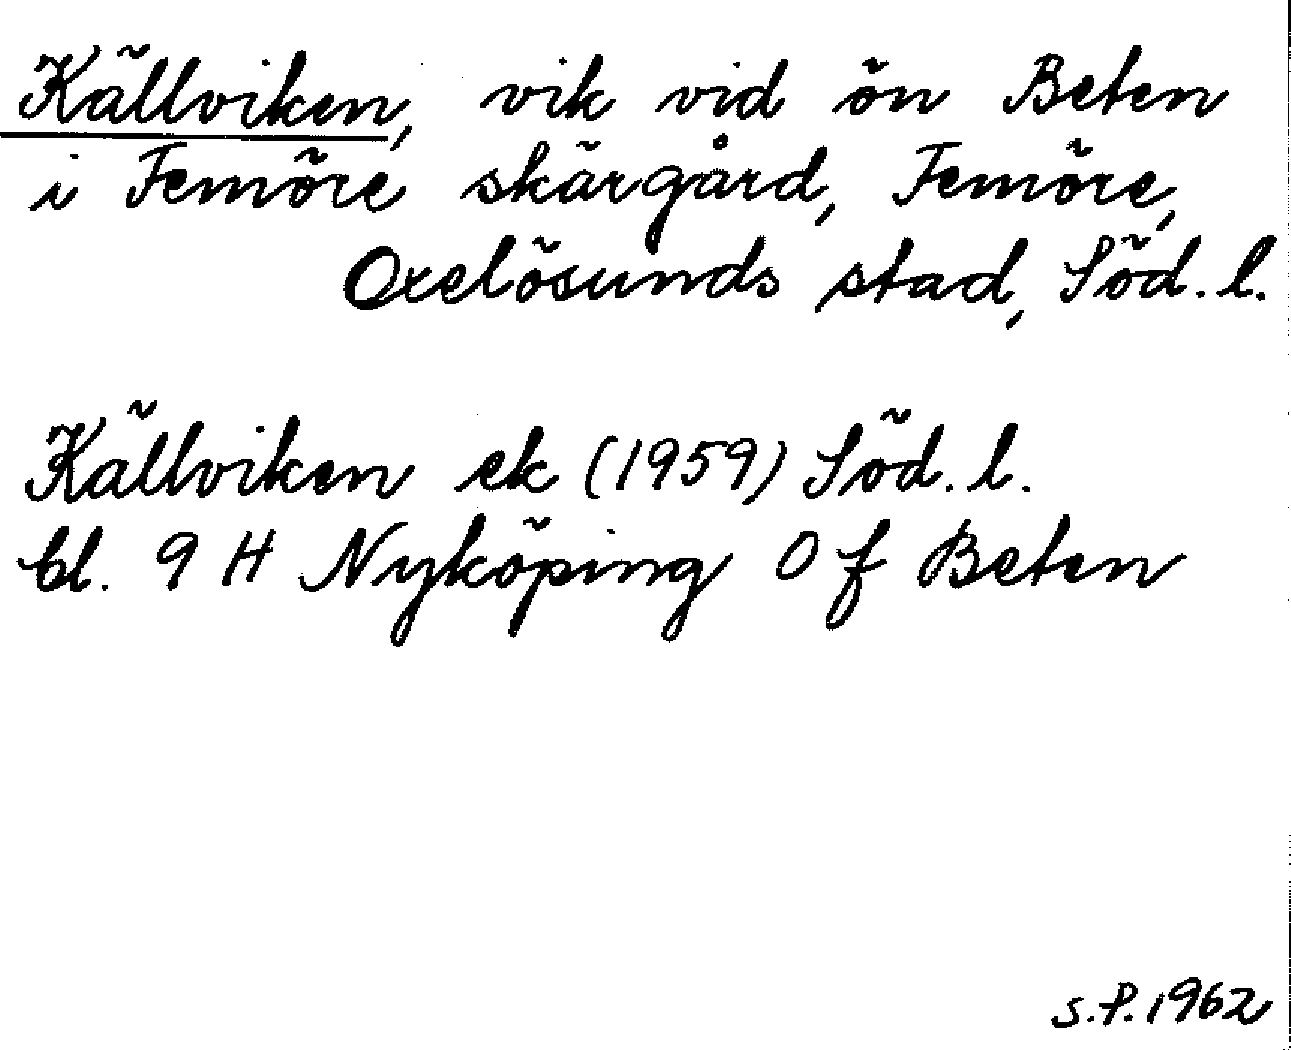 Källviken, vik vid ön Beten
i Femöre skärgård, Femöre,
Oxelösunds stad, Söd. l.
Källviken ek (1959) Söd. l.
bl. 9 H Nyköping 0 f Beten
S.P. 1962